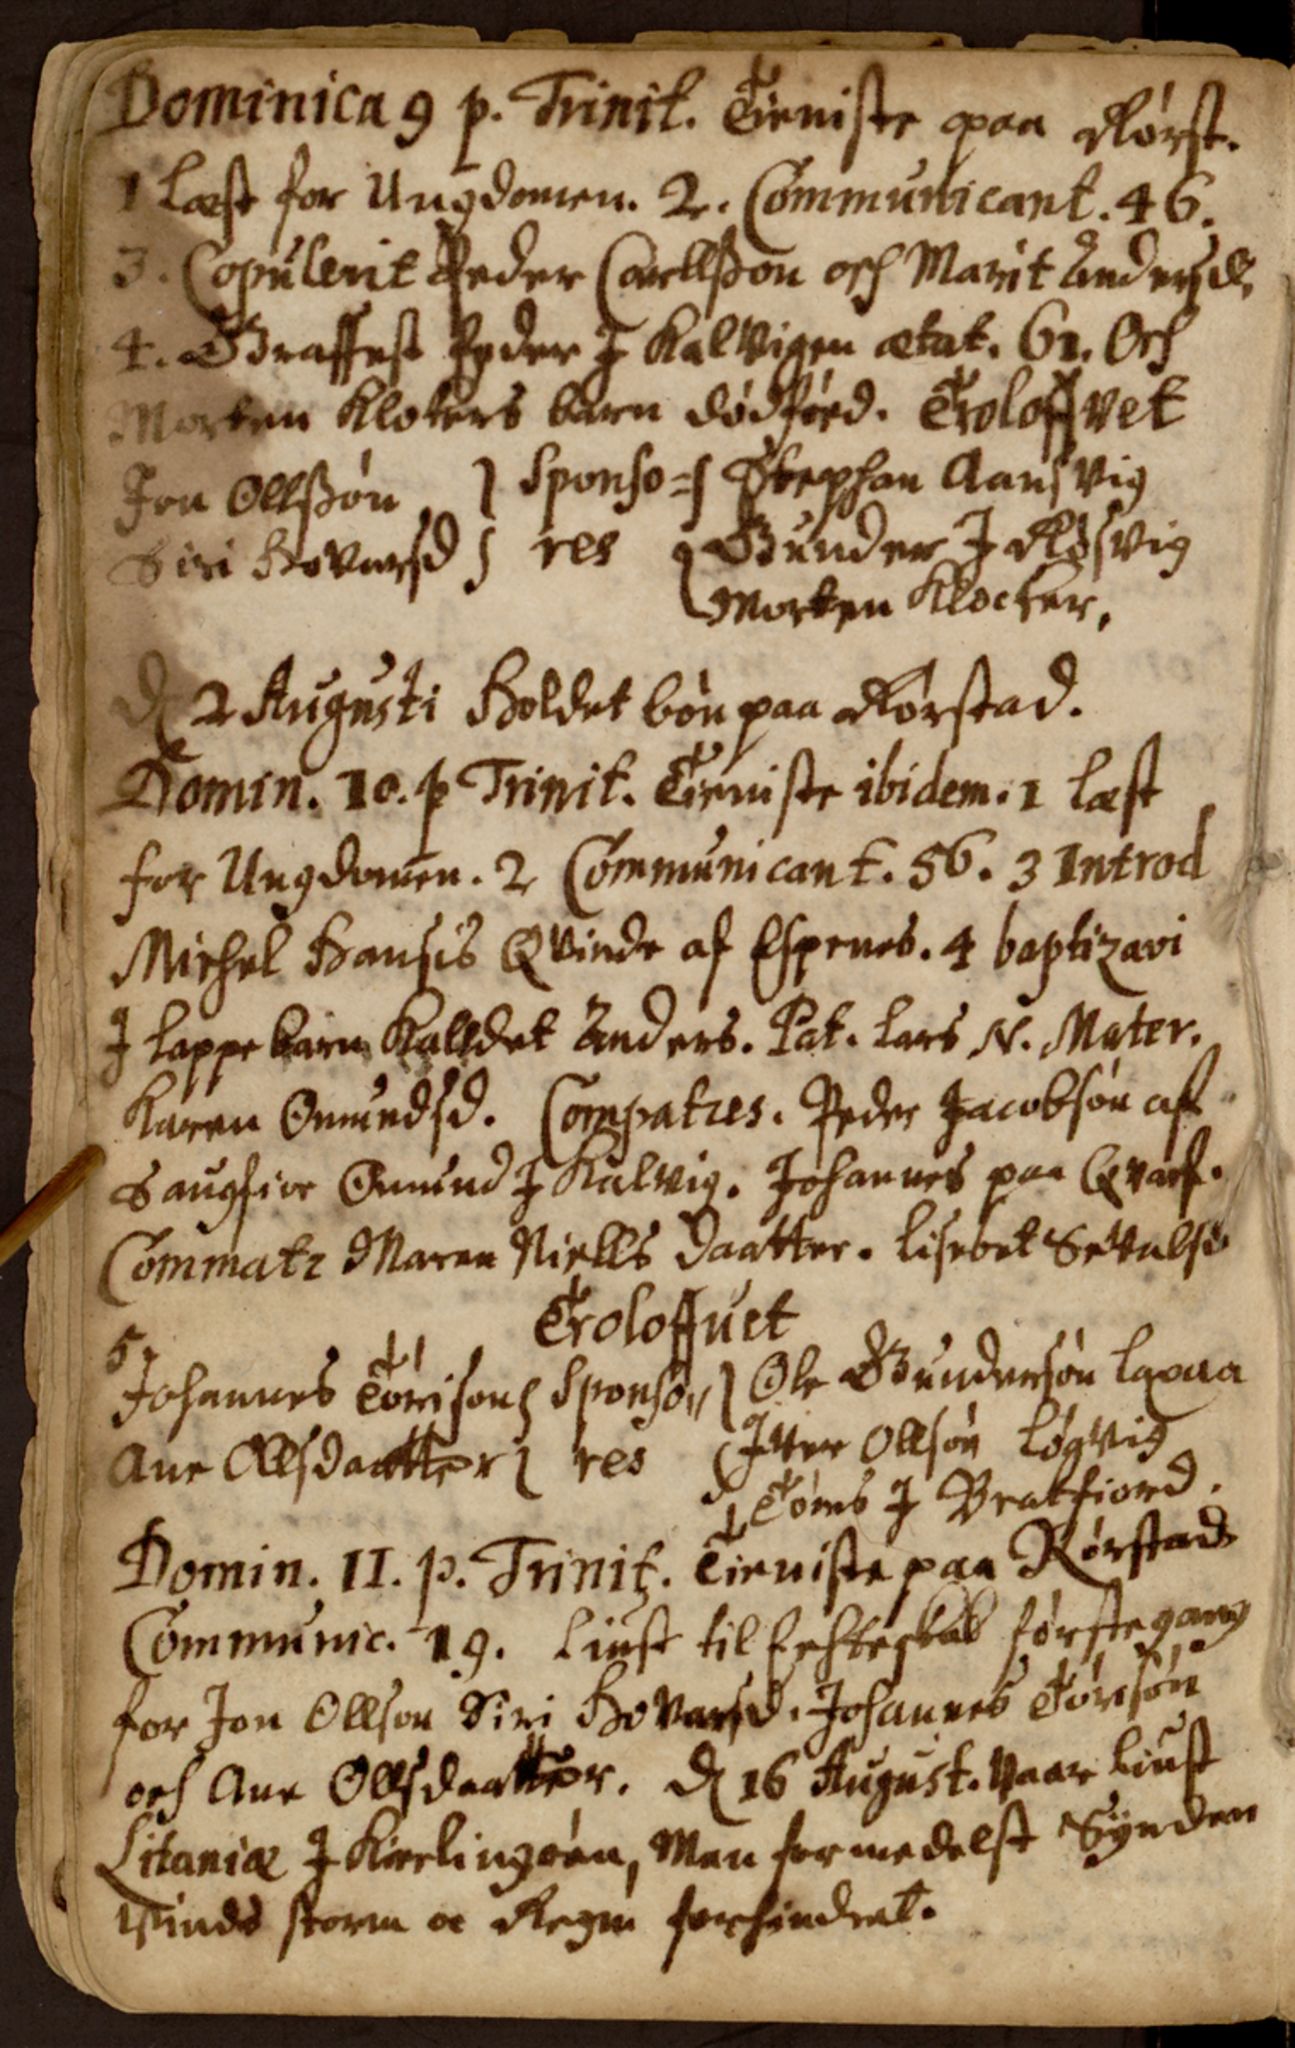 Dominica 9 p. Trinit. Tieniste paa Rørst.
1 læst for Ungdomen. 2. Communicant. 46.
3. Copulerit Peder Carllßon och Marit Andersd.
4. Graffest Peder J Kalvigen ætat. 61. Och
Morten Klokers barn dødførd. Troloffvet
Jon Ollßøn } Sponso= { Stephan Aansvig
Siri Hovarsd } res { Gunder J Røsvig
Morten Klocker,
D 2 Augusti Holdet bøn paa Rørstad.
Domin. 10. p Trinit. Tieniste ibidem. 1 læst
for Ungdomen. 2 Communicant. 56. 3 Introd
Michel Hansis Qvinde af Espenes. 4 baptizavi
J lappe barn Kalldet Anders. Pat. Lars N. Mater.
Karen Omundsd. Compatres. Peder Jacobsøn aff
Saugfior Omund J Kalvig. Johannes paa Qvarf.
Commatr Maren Niells daatter. Lisebet Sevalsd
Troloffuet
5.
Johannes Tørison } Sponso,, } Ole Gundersøn Lapaa
Ane Ollsdaatter } res { Iver Ollsøn Løgvig
Tøms J Bratfiord.
Domin. 11. p. Trinit. Tieniste paa Rørstad
Communic. 19. Liust til Echteskab første gang
for Jon Ollson Siri Hovarsd. Johannes Tørisøn
och Ane Ollsdaatter. D 16 August. vaar liust
Litaniæ J Kierlingøen, Men formedelst Synden
vinds storm oc Regn forhindret.